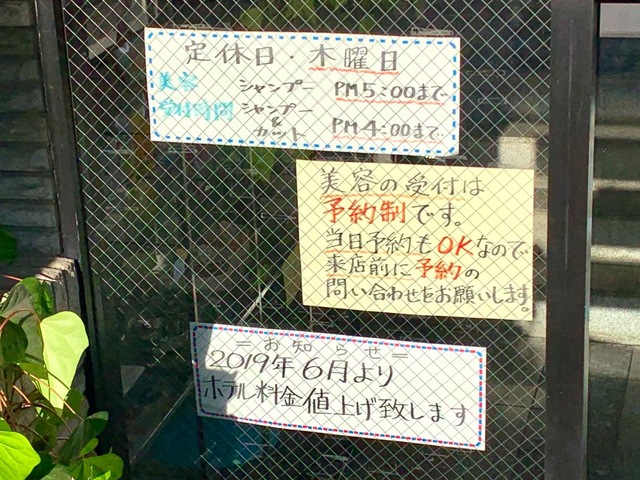 定休日・木曜日
美容 シャンプー PM5:00まで
受付時間 シャンプー
&
カット PM4:00まで
美容の受付は
予約制です。
当日予約もOKなので
来店前に予約の
問い合わせをお願いします。
=お知らせ=
2019年6月より
ホテル料金値上げ致します